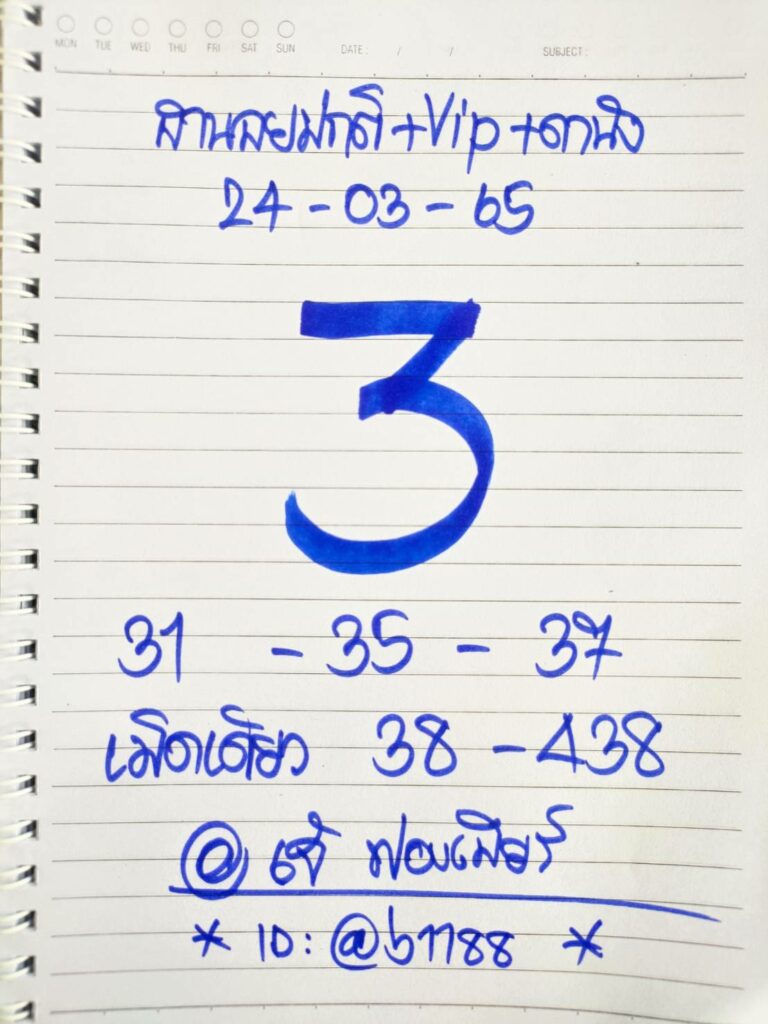 MON TUE WED THU FRI SAT SUN DATE: / / SUBJECT:
ฮานอยปกติ+Vip+ดานัง
24-03-65
3
31 - 35 - 37
เม็ดเดียว 38 - 438
@ เจ๊ ฟองเบียร์
* ID: @b1188 *